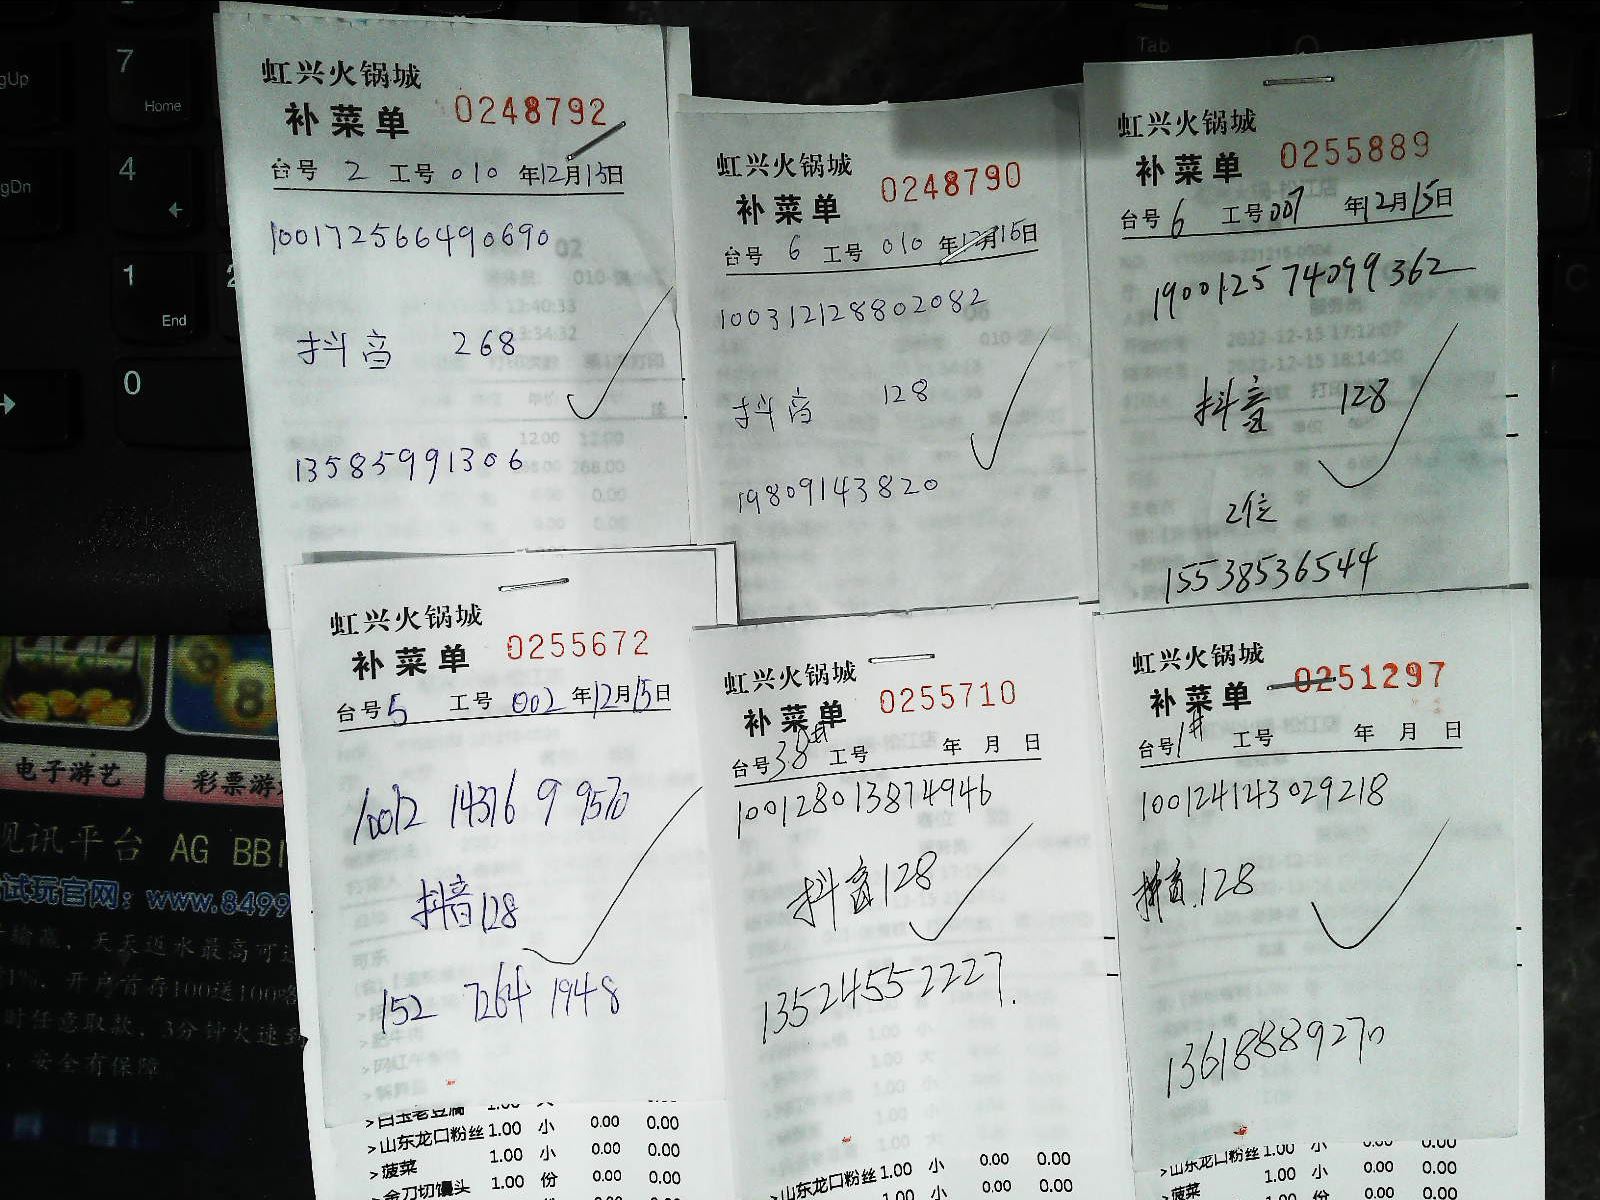 虹兴火锅城
补菜单 0248792
台号 2 工号 010 年12月15日
100172566490690
抖音 268
13585991306
虹兴火锅城
补菜单 0248790
台号 6 工号 010 年12月15日
100312128802082
抖音 128
19809143820
虹兴火锅城
补菜单 0255889
台号 6 工号 007 年12月15日
190012574099362
抖音 128
2位
15538536544
虹兴火锅城
补菜单 0255672
台号 5 工号 002 年12月15日
10012 14376 9 9570
抖音128
152 7264 1948
>山东龙口粉丝 1.00 小 0.00 0.00
>菠菜 1.00 小 0.00 0.00
>金刀切馒头 1.00 份 0.00 0.00
虹兴火锅城
补菜单 0255710
台号 38# 工号 年 月 日
100128013874946
抖音128
13524552227.
>山东龙口粉丝 1.00 小 0.00 0.00
1.00 小 0.00 0.00
虹兴火锅城
补菜单 0251297
台号 1# 工号 年 月 日
100124143029218
抖音.128
13618889270
>山东龙口粉丝 1.00 小 0.00 0.00
>菠菜 1.00 小 0.00 0.00
7
Home
4
1
End
0
Tab
电子游艺
彩票游
视讯平台 AG BBI
试玩官网：www.8499
输赢，天天返水最高可达
1%，开户首存100送100
时任意取款，3分钟火速到
，安全有保障